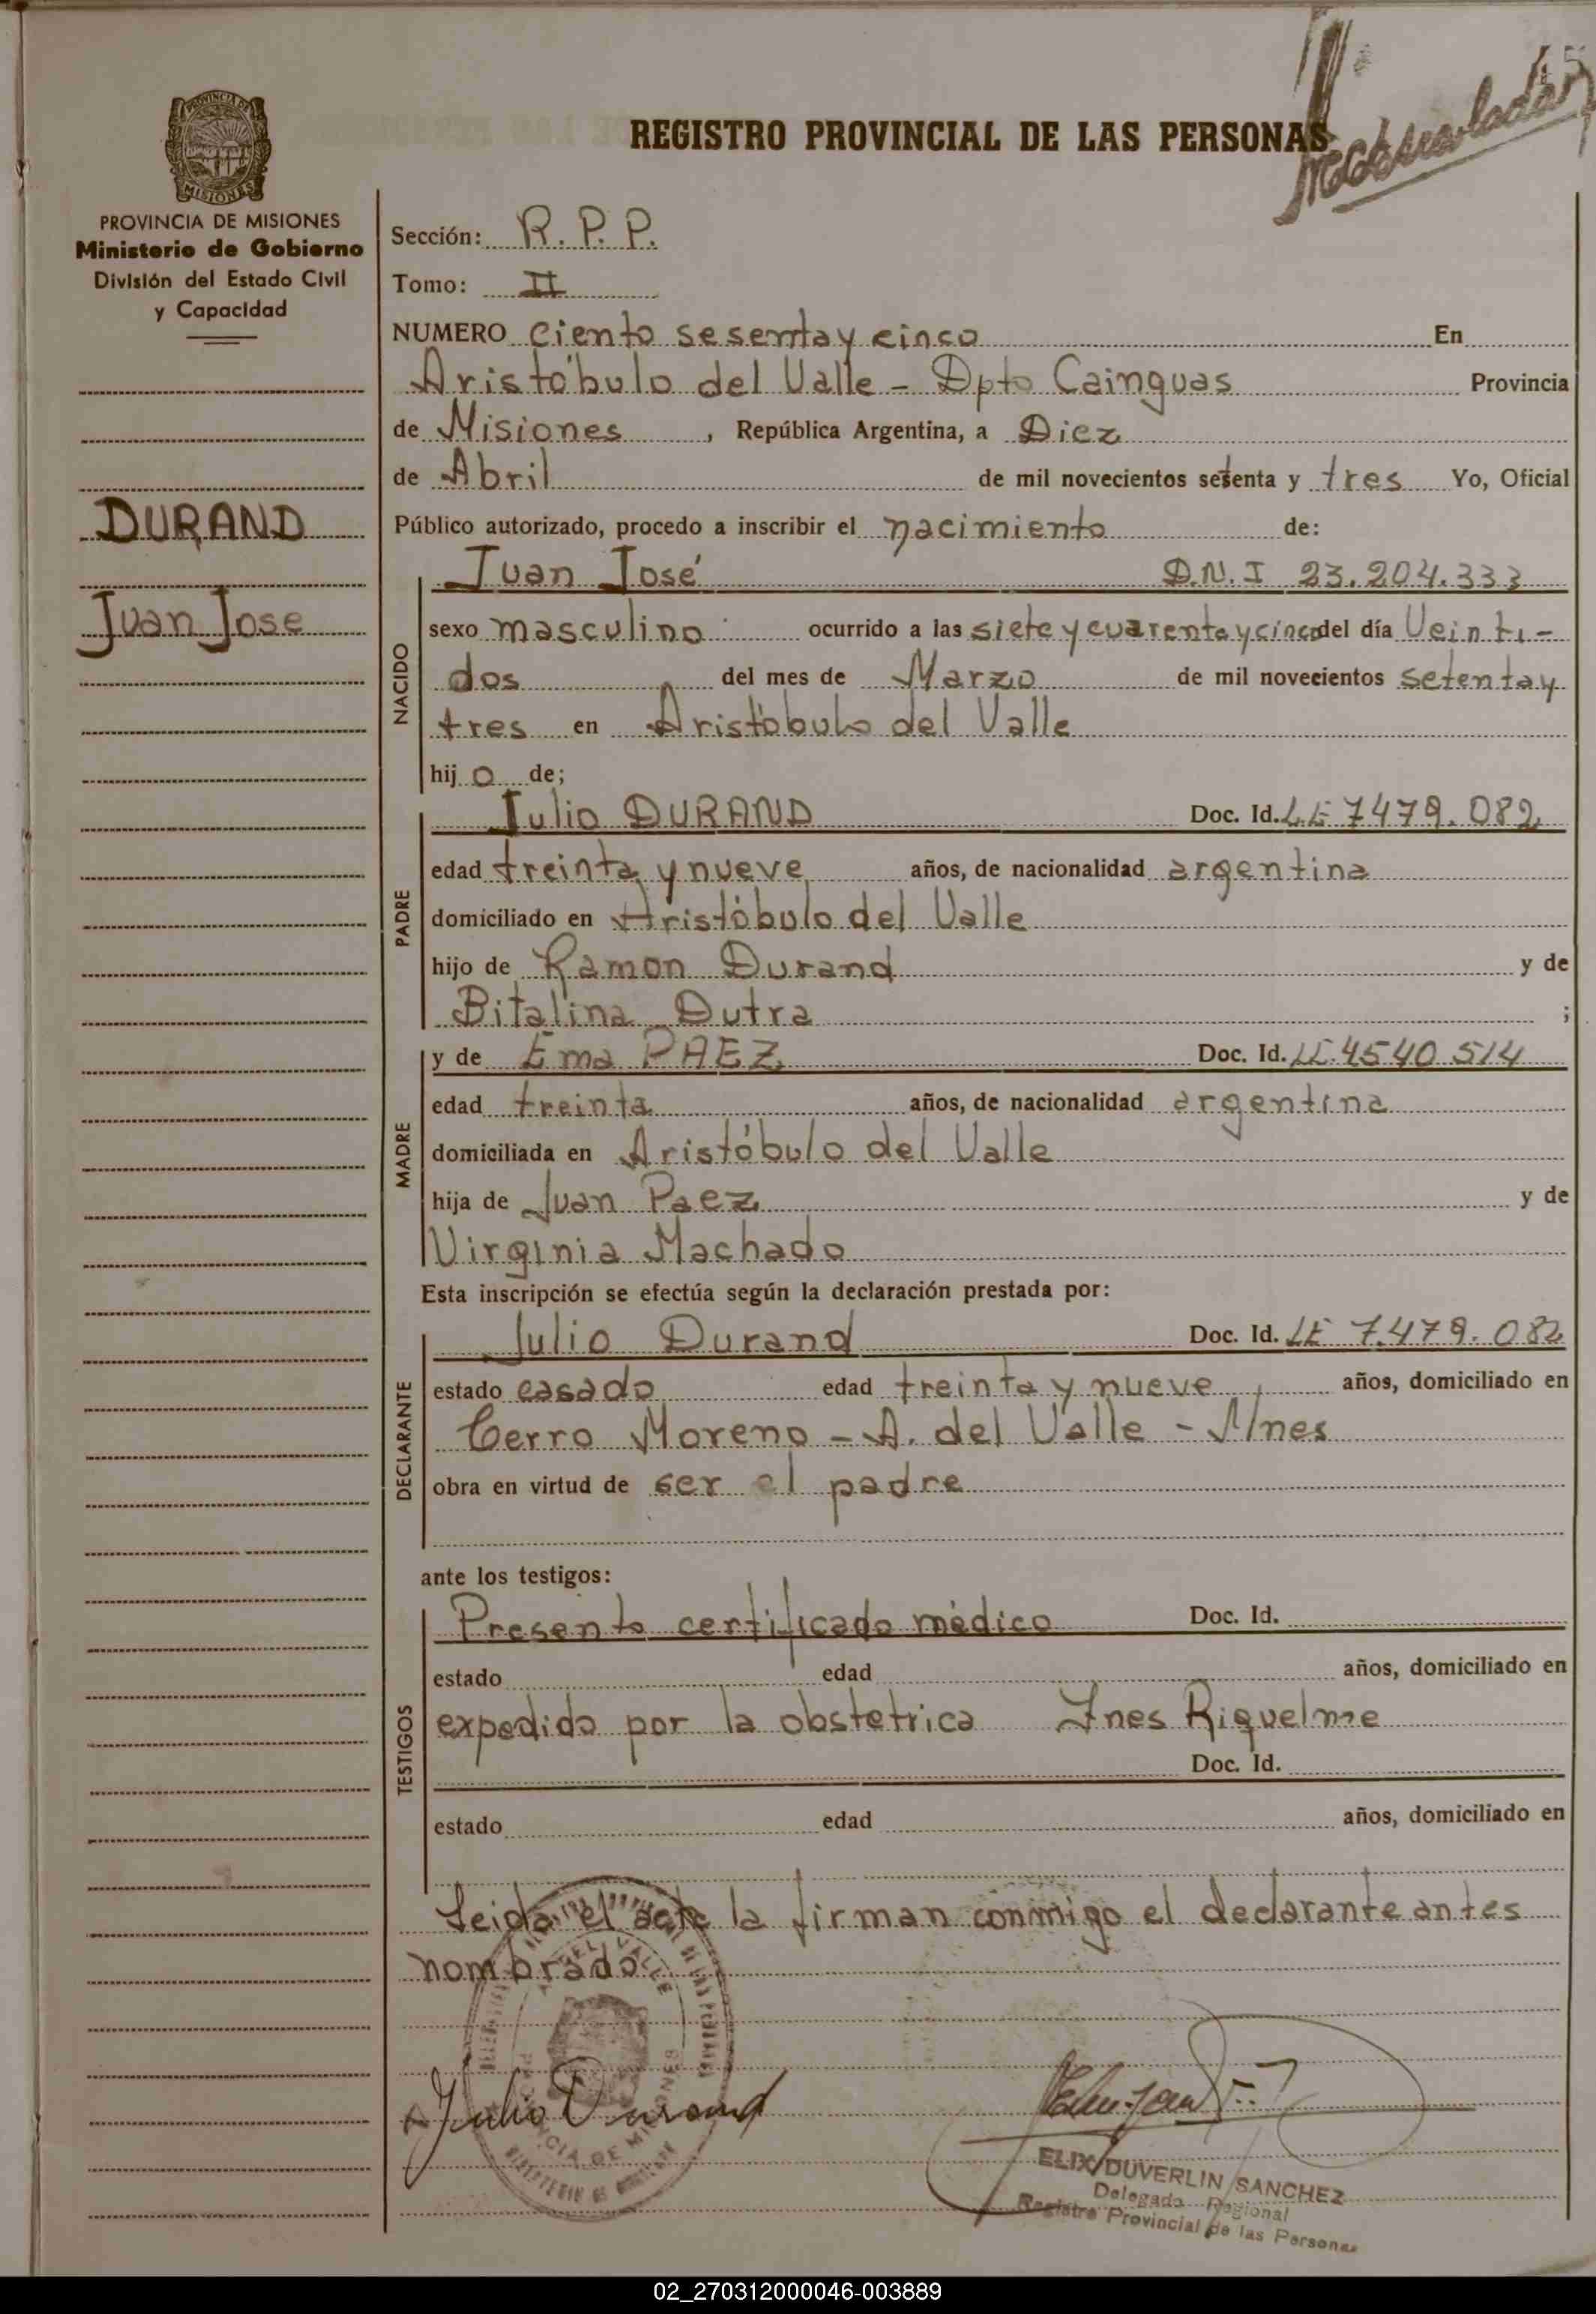 REGISTRO PROVINCIAL DE LAS PERSONAS
Mecanografiada
PROVINCIA DE
MISIONES
PROVINCIA DE MISIONES
Ministerio de Gobierno
División del Estado Civil
y Capacidad
DURAND
Juan Jose
Sección: R. P. P.
Tomo: II
NUMERO Ciento sesenta y cinco En
Aristóbulo del Valle - Dpto Cainguas Provincia
de Misiones, República Argentina, a Diez
de Abril de mil novecientos setenta y tres Yo, Oficial
Público autorizado, procedo a inscribir el nacimiento de:
NACIDO
Juan José D.N.I 23.204.333
sexo masculino ocurrido a las siete y cuarenta y cinco del día Veinti-
dos del mes de Marzo de mil novecientos setenta y
tres en Aristóbulo del Valle
hijo de;
PADRE
Julio DURAND Doc. Id. LE 7479.082
edad treinta y nueve años, de nacionalidad argentina
domiciliado en Aristóbulo del Valle
hijo de Ramon Durand y de
Bitalina Dutra ;
MADRE
y de Ema PAEZ Doc. Id. LC. 4540 514
edad treinta años, de nacionalidad argentina
domiciliada en Aristóbulo del Valle
hija de Juan Paez y de
Virginia Machado
Esta inscripción se efectúa según la declaración prestada por:
DECLARANTE
Julio Durand Doc. Id. LE 7.479.082
estado casado edad treinta y nueve, años, domiciliado en
Cerro Moreno - A. del Valle - Mnes
obra en virtud de ser el padre
ante los testigos:
TESTIGOS
Presento certificado médico Doc. Id.
estado edad años, domiciliado en
expedido por la obstetrica Ines Riquelme
Doc. Id.
estado edad años, domiciliado en
Leida el acta la firman conmigo el declarante antes
nombrado
Julio Durand
ELIX DUVERLIN SANCHEZ
Delegado Regional
Registro Provincial de las Personas
02_270312000046-003889